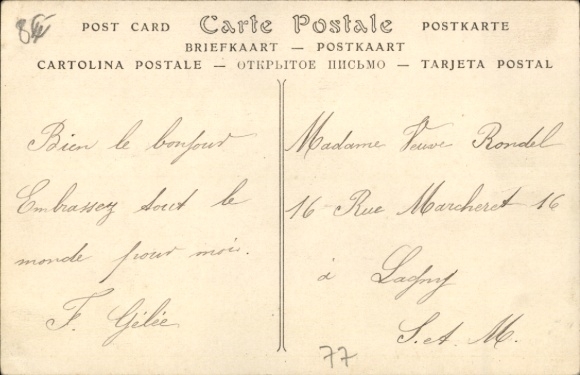 POST CARD Carte Postale POSTKARTE
BRIEFKAART — POSTKAART
CARTOLINA POSTALE — ОТКРЫТОЕ ПИСЬМО — TARJETA POSTAL
Bien le bonjour
Embrassez tout le
monde pour moi.
F. Gélée
Madame Veuve Rondel
16 Rue Marcheret 16
à Lagny
S. et M.
77